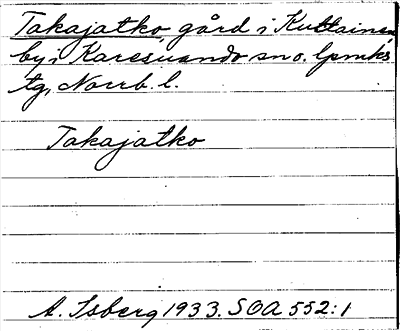 Takajatko gård i Kuttainen
by i Karesuando sn o. lpmks
tg, Norrb. l.
Takajatko
A. Isberg 1933. SOA 552:1